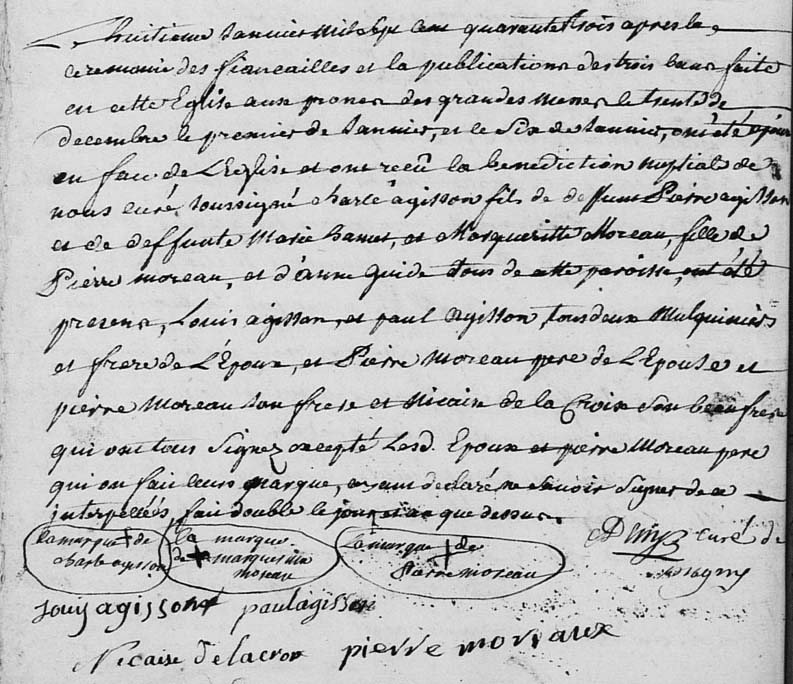 huitieme Janvier mil sept cent quarante trois apres la
ceremonie des fiancailles et la publications des trois bans faite
en cette Eglise aux prones des grandes messes le trente de
decembre le premier de Janvier, et le six de Janvier, ont été
en face de L'Eglise et ont reçû la benediction nuptial de
nous curé soussigné charle agisson fils de deffunt Pierre agisson
et de deffunte Marie hanet, et Margueritte Moreau, fille de
Pierre moreau, et d'anne guide tous de cette paroisse, ont été
presens, Louis agisson, et paul agisson, tous deux Mulquiniers
et frere de L'Epoux, et Pierre Moreau pere de L'Epouse et
pierre Moreau son frere et Nicaise de la Croix son beau frere
qui ont tous signez excepté Lesd. Epoux et pierre Moreau pere
qui on fait leurs marque, ayant declaré ne scavoir signer de ce
interpellés fait double le jour et an que dessus.
la marque de la marque la marque de curé de
charle agisson de margueritte pierre moreau
moreau
Louis agisson paul agisson
Nicaise delacroix pierre moreaux